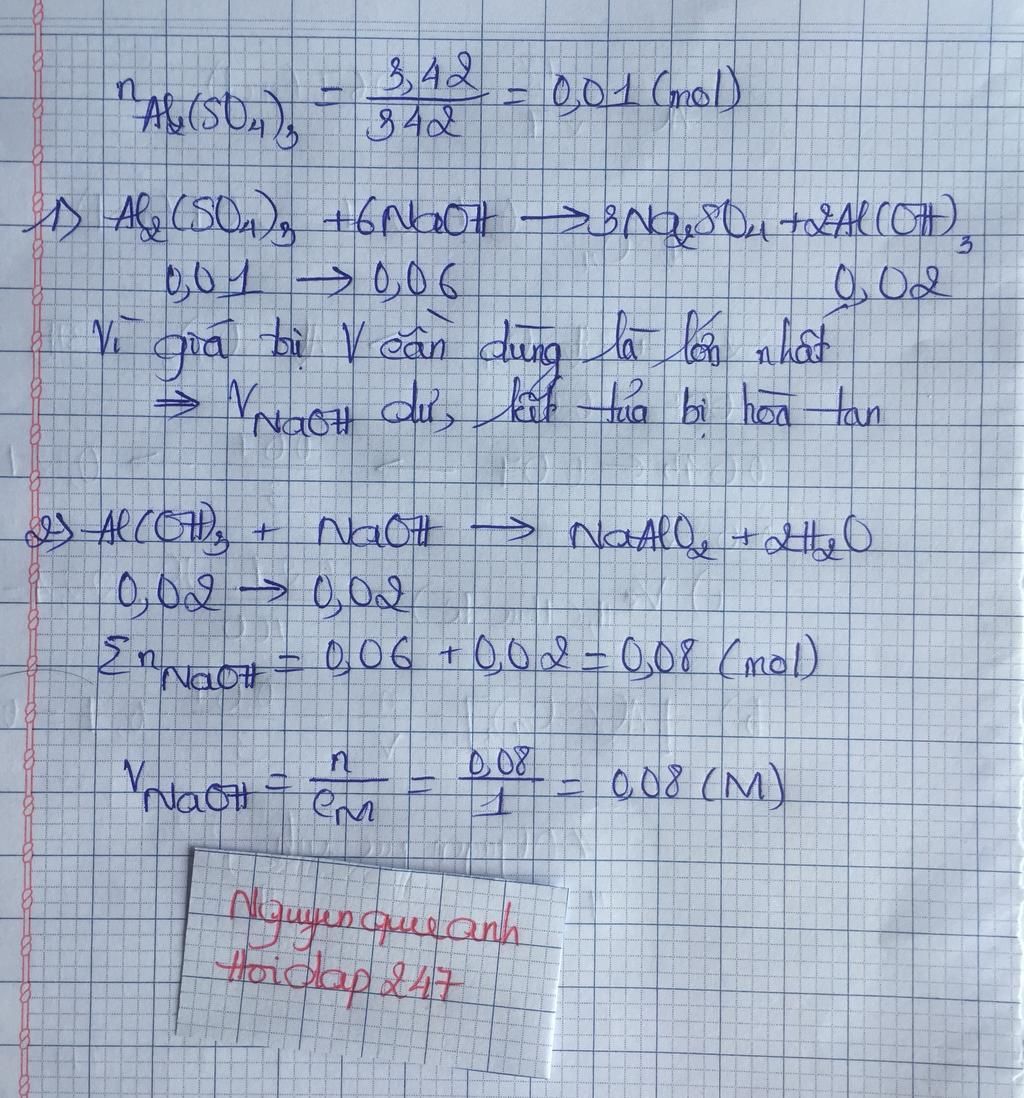 nAl2(SO4)3 = 3,42/342 = 0,01 (mol)
1) Al2(SO4)3 + 6NaOH → 3Na2SO4 + 2Al(OH)3
0,01 → 0,06 0,02
Vì giá trị V cần dùng là lớn nhất
⇒ VNaOH dư, kết tủa bị hòa tan
2) Al(OH)3 + NaOH → NaAlO2 + 2H2O
0,02 → 0,02
ΣnNaOH = 0,06 + 0,02 = 0,08 (mol)
VNaOH = n/CM = 0,08/1 = 0,08 (M)
Nguyenqueanh
Hoidap247